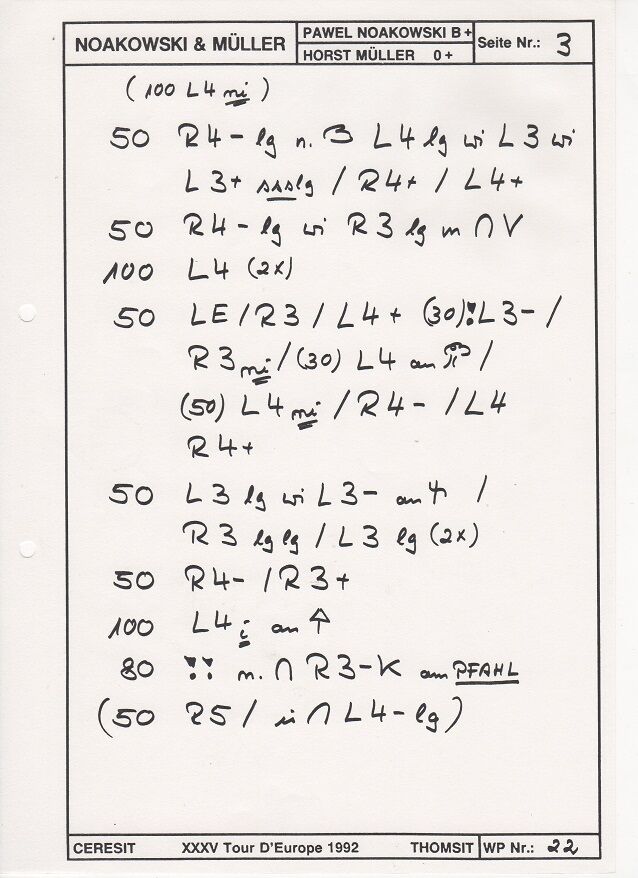 NOAKOWSKI & MÜLLER
PAWEL NOAKOWSKI B+
HORST MÜLLER 0+
Seite Nr.: 3
(100 L4 ni)
50 R4- lg n. B L4 lg wi L3 wi
L3+ ssslg / R4+ / L4+
50 R4- lg wi R3 lg m ∩ V
100 L4 (2x)
50 LE / R3 / L4+ (30) ! L3- /
R3 ni / (30) L4 an /
(50) L4 ni / R4- / L4
R4+
50 L3 lg wi L3- an /
R3 lg lg / L3 lg (2x)
50 R4- / R3+
100 L4 i an ↑
80 !! n. ∩ R3-K am PFAHL
(50 R5 / ii ∩ L4- lg)
CERESIT XXXV Tour D'Europe 1992 THOMSIT WP Nr.: 22